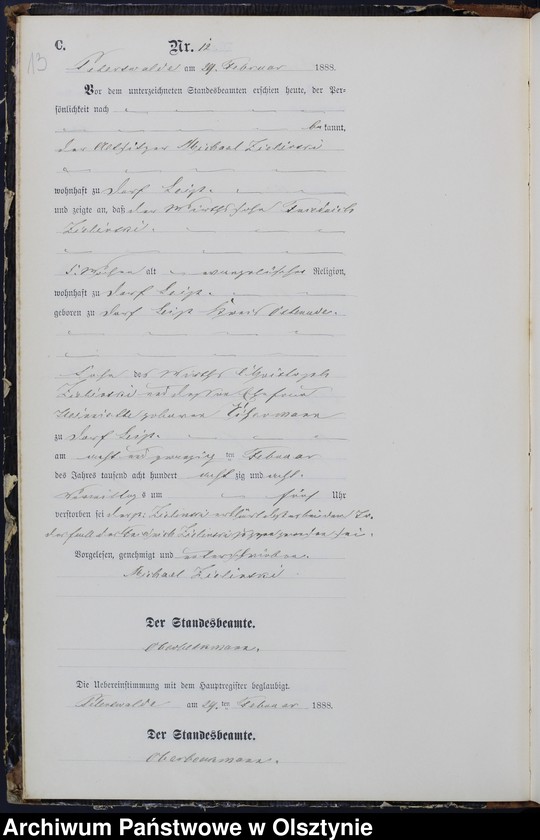 13
C. Nr. 12
Peterswalde am 29. Februar 1888.
Vor dem unterzeichneten Standesbeamten erschien heute, der Per-
sönlichkeit nach
bekannt,
der Altsitzer Michael Zielinski
wohnhaft zu Dorf Leip.
und zeigte an, daß der Wirthssohn Friedrich
Zielinski.
5 Wochen alt evangelischer Religion,
wohnhaft zu Dorf Leip.
geboren zu Dorf Leip Kreis Osterode.
Sohn des Wirths Christoph
Zielinski und dessen Ehefrau
geborene
zu Dorf Leip.
am acht und zwanzig ten Februar
des Jahres tausend acht hundert acht zig und acht.
Vormittags um fünf Uhr
verstorben sei
Friedrich Zielinski zugegen gewesen sei.
Vorgelesen, genehmigt und unterschrieben.
Michael Zielinski
Der Standesbeamte.
Die Uebereinstimmung mit dem Hauptregister beglaubigt.
Peterswalde am 29. ten Februar 1888.
Der Standesbeamte.
Archiwum Państwowe w Olsztynie